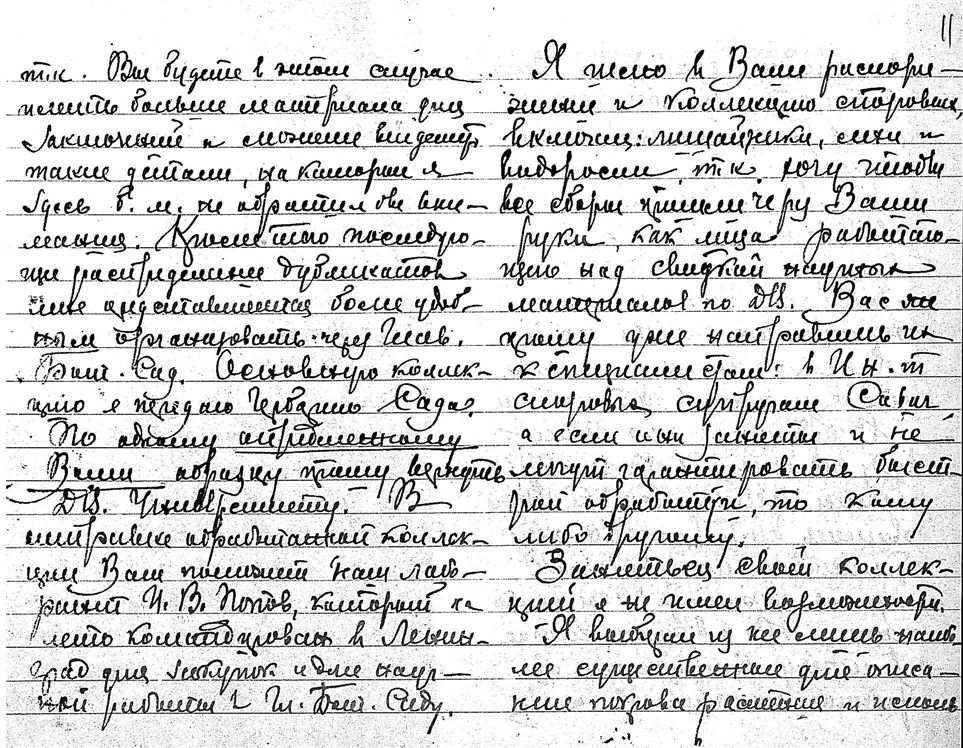 11
т.к. Вы будете в этом случае
иметь больше материала для
заключений и сможете видеть
такие детали, на которые я
здесь б. м. не обратил бы вни-
мания. Кроме того последую-
щее распределение дубликатов
мне представляется более удоб-
ным организовать через Глав.
Бот. Сад. Основную коллек-
цию я передаю Гербарию Сада.
По одному определенному
Вами образцу прошу вернуть
ДВ. Университету. В
отправке обработанной коллек-
ции Вам поможет наш лабо-
рант И. В. Попов, который на
лето командирован в Ленин-
град для закупок и для науч-
ной работы в Гл. Бот. Саду.
Я шлю в Ваше распоря-
жение и коллекцию споровых,
включая: лишайники, мхи и
водоросли, т.к. хочу чтобы
все сборы прошли через Ваши
руки, как лица работаю-
щего над сводкой научных
материалов по ДВ. Вас же
прошу уже направить их
к специалистам: в Ин-т
споровых супругам Савич
а если они заняты и не
могут гарантировать быст-
рой обработки, то кому
либо другому.
Заняться своей коллек-
цией я не имел возможности.
Я выбрал из нее лишь наибо-
лее существенные для описа-
ния покрова растения и исполь